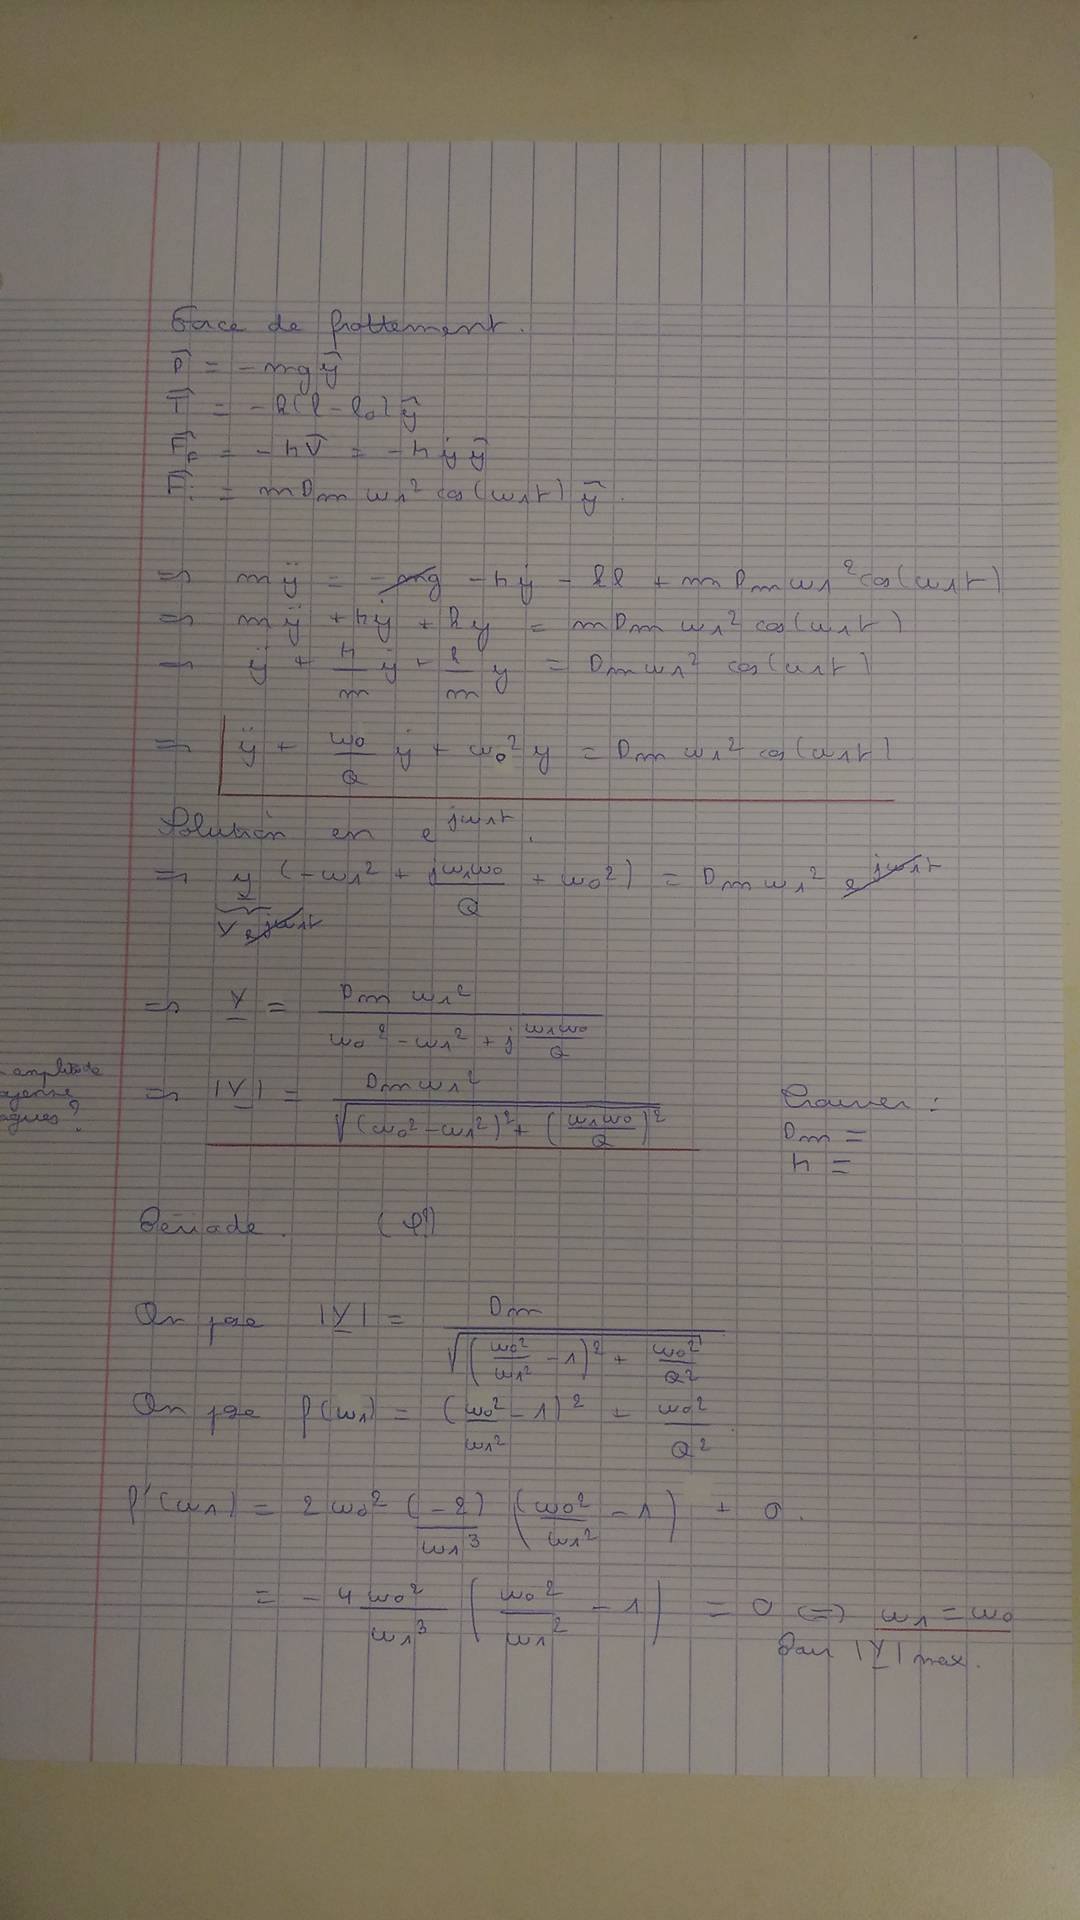 Force de frottement.
P⃗ = - mg y⃗
T⃗ = - k(l - l₀) y⃗
F⃗f = - h V⃗ = - h ẏ y⃗
F⃗i = m Dm ω₁² cos(ω₁t) y⃗.
⇒ m ÿ = - mg - hẏ - kl + m Dm ω₁² cos(ω₁t)
⇒ m ÿ + hẏ + ky = m Dm ω₁² cos(ω₁t)
⇒ ÿ + h/m ẏ + k/m y = Dm ω₁² cos(ω₁t)
⇒ ÿ + ω₀/Q ẏ + ω₀² y = Dm ω₁² cos(ω₁t)
Solution en e^(jω₁t).
⇒ y (-ω₁² + jω₁ω₀/Q + ω₀²) = Dm ω₁² e^(jω₁t)
Y e^(jω₁t)
⇒ Y = Dm ω₁² / (ω₀² - ω₁² + j ω₁ω₀/Q)
amplitude
⇒ |Y| = Dm ω₁² / √((ω₀² - ω₁²)² + (ω₁ω₀/Q)²)
Trouver :
Dm =
h =
Période.
On pose |Y| = Dm / √((ω₀²/ω₁² - 1)² + ω₀²/Q²)
On pose f(ω₁) = (ω₀²/ω₁² - 1)² + ω₀²/Q²
f'(ω₁) = 2 ω₀² (-2)/ω₁³ (ω₀²/ω₁² - 1) + 0.
= - 4 ω₀²/ω₁³ (ω₀²/ω₁² - 1) = 0 ⇔ ω₁ = ω₀
Pour |Y| max.